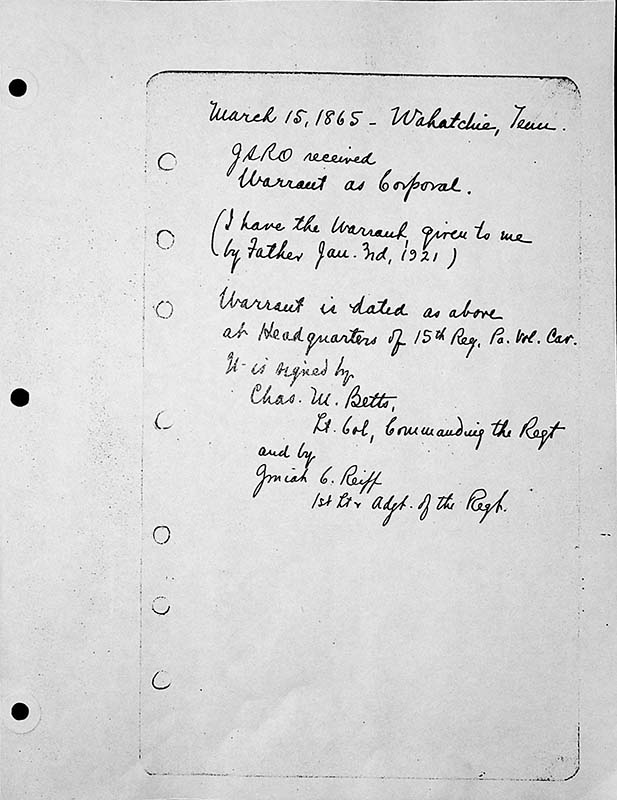 March 15, 1865 - Wahatchie, Tenn.
JSRO received
Warrant as Corporal.
(I have the Warrant, given to me
by Father Jan. 3rd, 1921)
Warrant is dated as above
at Headquarters of 15th Reg, Pa. Vol. Cav.
It is signed by
Chas. M. Betts,
Lt. Col, Commanding the Regt
and by
C. Reiff
1st Lt & Adgt. of the Regt.